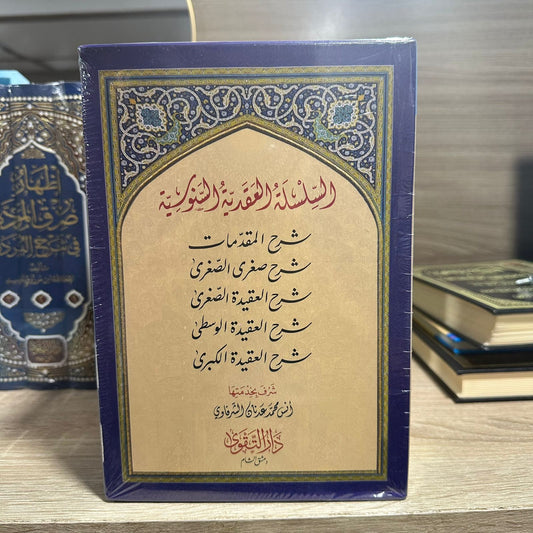 السِّلْسِلَة العَقَدِيَّة السَّنُوسِيَّة
شرح المقدّمات
شرح صغرى الصّغرى
شرح العقيدة الصّغرى
شرح العقيدة الوسطى
شرح العقيدة الكبرى
شرف بخدمتها
أنس محمد عدنان الشرفاوي
دار التقوى
دمشق الشام
إظهار
في شرح البردة